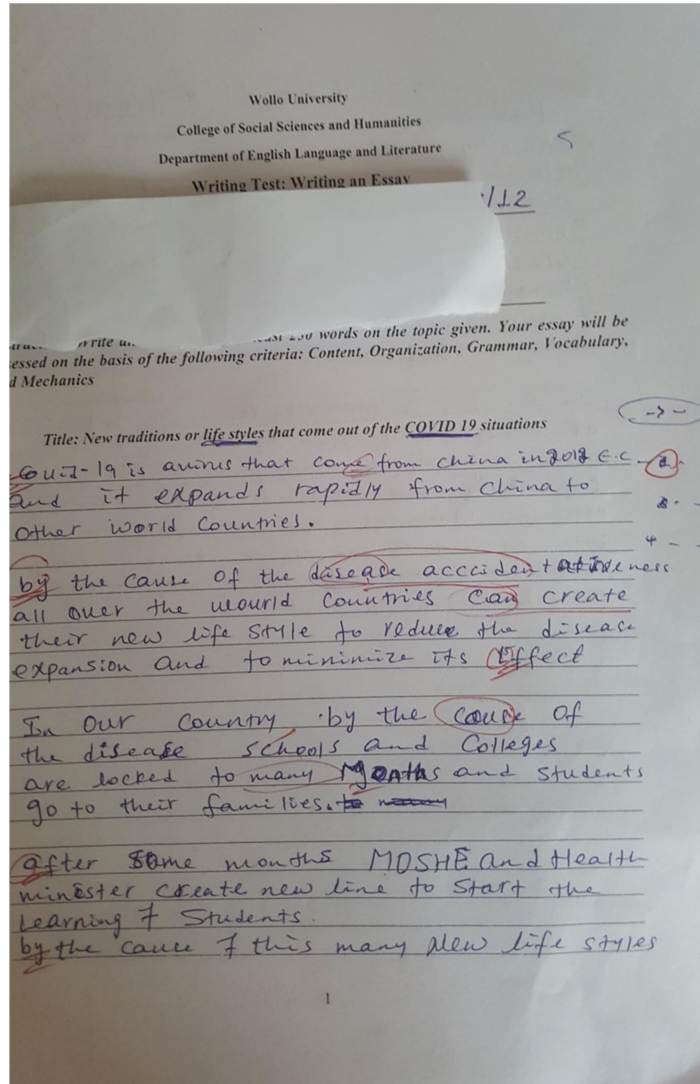 Wollo University
College of Social Sciences and Humanities
Department of English Language and Literature
Writing Test: Writing an Essay
/12
words on the topic given. Your essay will be
essed on the basis of the following criteria: Content, Organization, Grammar, Vocabulary,
d Mechanics
Title: New traditions or life styles that come out of the COVID 19 situations
Covid-19 is a virus that come from china in 2012 E.C
and it expands rapidly from China to
other world Countries.
by the cause of the disease acccident
all over the wourld countries can create
their new life style to reduce the disease
expansion and to minimize its effect
In our country by the couse of
the disease schools and Colleges
are locked to many Months and students
go to their families.
after some months MOSHE and Health
minester create new line to start the
Learning of Students.
by the cause of this many New life styles
1